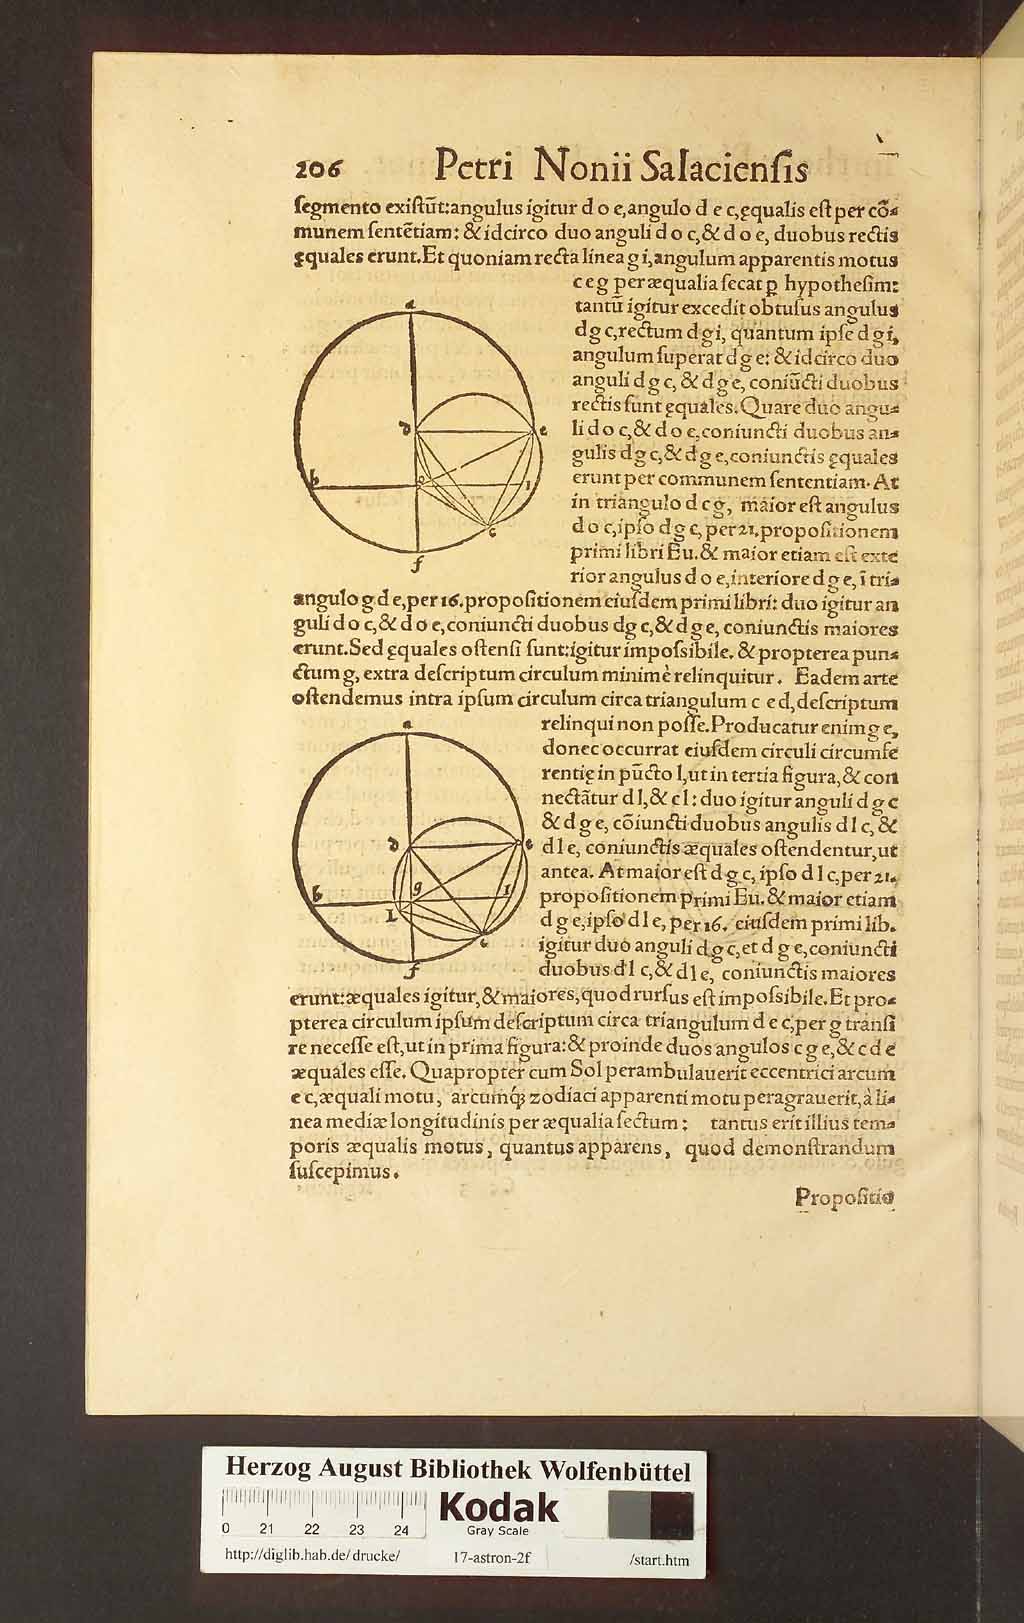 206 Petri Nonii Salaciensis
segmento existũt: angulus igitur d o e, angulo d e c, ęqualis est per cõ-
munem sentẽtiam: & idcirco duo anguli d o c, & d o e, duobus rectis
ęquales erunt. Et quoniam recta linea g i, angulum apparentis motus
c e g per æqualia secat ꝑ hypothesim:
tantũ igitur excedit obtusus angulus
d g c, rectum d g i, quantum ipse d g i,
angulum superat d g e: & idcirco duo
anguli d g c, & d g e, coniũcti duobus
rectis sunt ęquales. Quare duo angu-
li d o c, & d o e, coniuncti duobus an-
gulis d g c, & d g e, coniunctis ęquales
erunt per communem sententiam. At
in triangulo d c g, maior est angulus
d o c, ipso d g c, per 21. propositionem
primi libri Eu. & maior etiam est exte
rior angulus d o e, interiore d g e, ĩ tri-
angulo g d e, per 16. propositionem eiusdem primi libri: duo igitur an
guli d o c, & d o e, coniuncti duobus d g c, & d g e, coniunctis maiores
erunt. Sed ęquales ostensi sunt: igitur impossibile. & propterea pun-
ctum g, extra descriptum circulum minimè relinquitur. Eadem arte
ostendemus intra ipsum circulum circa triangulum c e d, descriptum
relinqui non posse. Producatur enim g e,
donec occurrat eiusdem circuli circumfe
rentię in pũcto l, ut in tertia figura, & con
nectãtur d l, & c l: duo igitur anguli d g c
& d g e, cõiuncti duobus angulis d l c, &
d l e, coniunctis æquales ostendentur, ut
antea. At maior est d g c, ipso d l c, per 21.
propositionem primi Eu. & maior etiam
d g e, ipso d l e, per 16. eiusdem primi lib.
igitur duo anguli d g c, et d g e, coniuncti
duobus d l c, & d l e, coniunctis maiores
erunt: æquales igitur, & maiores, quod rursus est impossibile. Et pro-
pterea circulum ipsum descriptum circa triangulum d e c, per g transi
re necesse est, ut in prima figura: & proinde duos angulos c g e, & c d e
æquales esse. Quapropter cum Sol perambulauerit eccentrici arcum
e c, æquali motu, arcumq́; zodiaci apparenti motu peragrauerit, à li-
nea mediæ longitudinis per æqualia sectum: tantus erit illius tem-
poris æqualis motus, quantus apparens, quod demonstrandum
suscepimus.
Propositio
a
d
e
b
o
i
c
f
a
d
e
b
g
i
L
c
f
Herzog August Bibliothek Wolfenbüttel
0 21 22 23 24
Kodak
Gray Scale
http://diglib.hab.de/drucke/ 17-astron-2f /start.htm